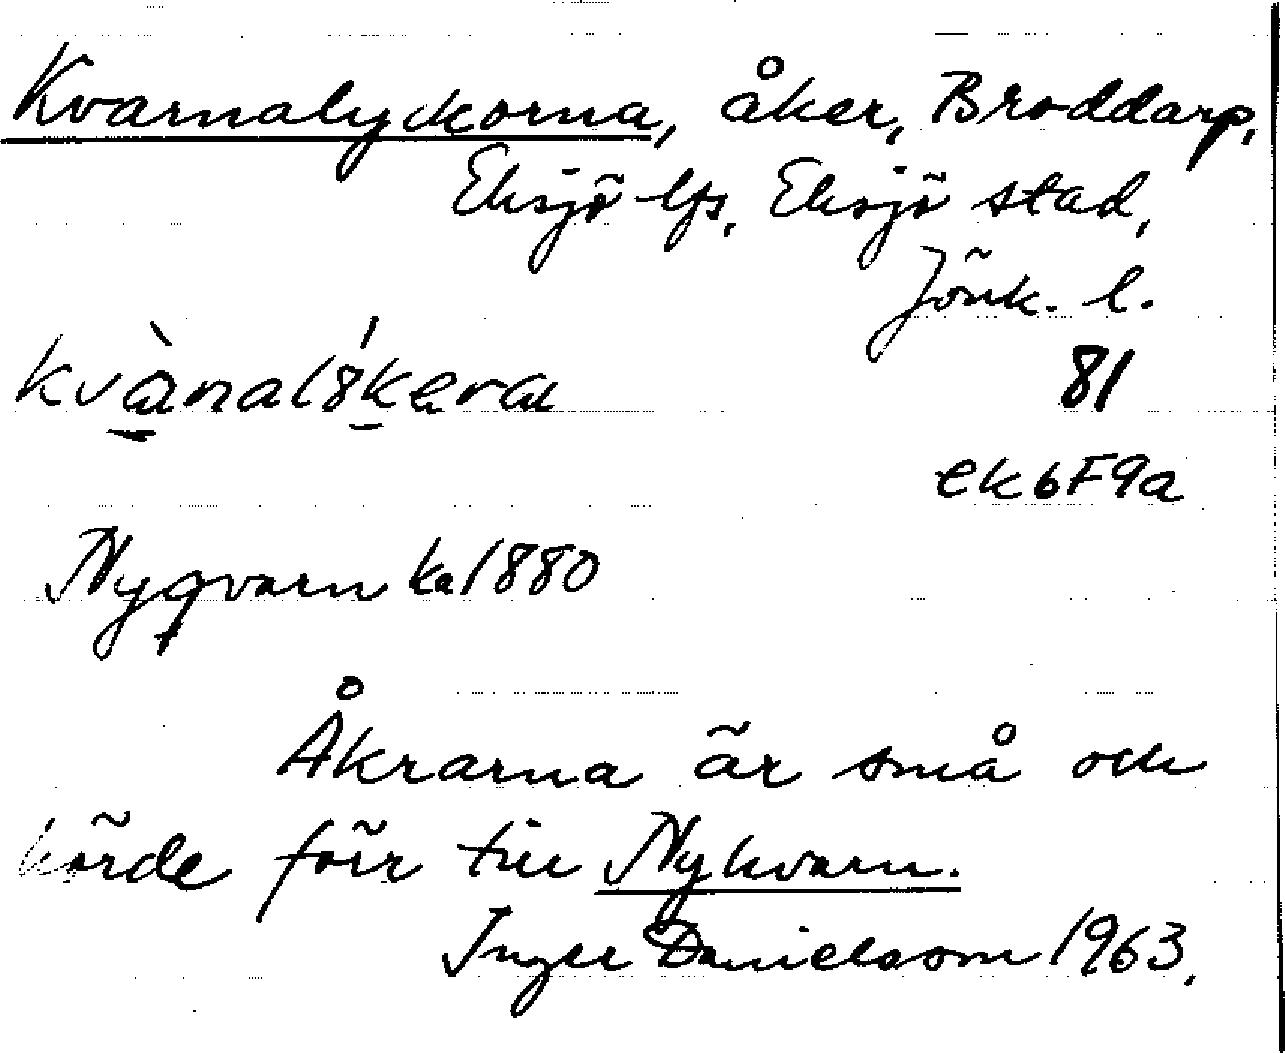 Kvarnalyckorna, åker, Broddarp,
Eksjö lfs, Eksjö stad,
Jönk. l.
kvànaló̱kera
81
ek6F9a
Nyqvarn ka 1880
Åkrarna är små och
hörde förr till Nykvarn.
Inger Danielsson 1963.